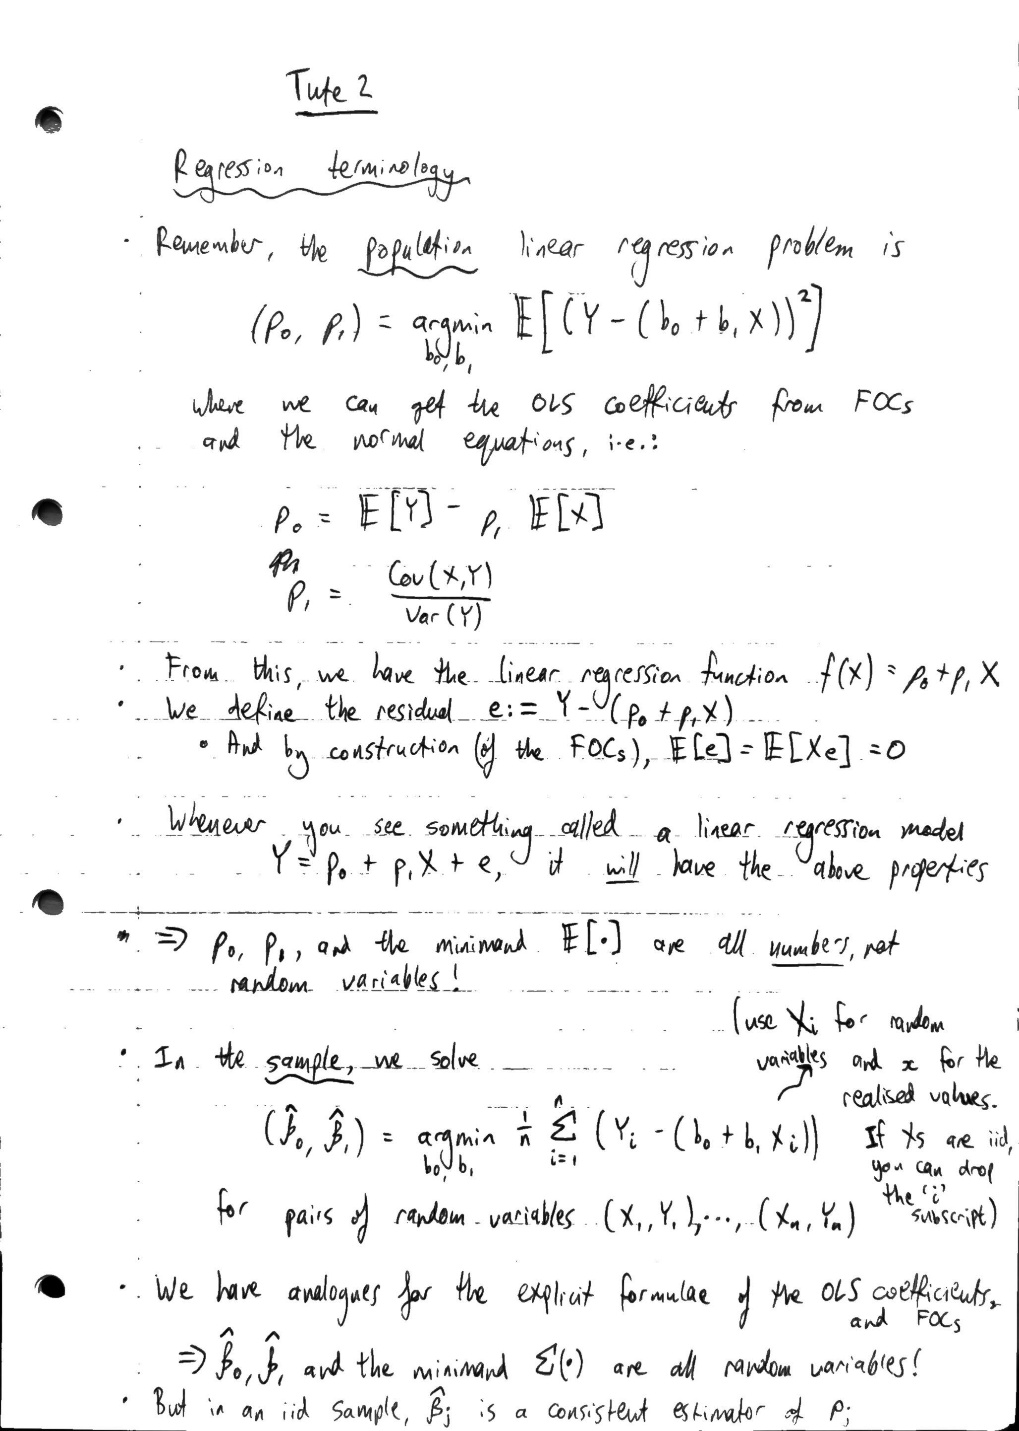 Tute 2
Regression terminology
· Remember, the population linear regression problem is
(ρ₀, ρ₁) = argmin_{b₀, b₁} 𝔼[(Y - (b₀ + b₁ X))²]
where we can get the OLS coefficients from FOCs
and the normal equations, i.e.:
ρ₀ = 𝔼[Y] - ρ₁ 𝔼[X]
ρ₁ = Cov(X,Y) / Var(Y)
· From this, we have the linear regression function f(X) = ρ₀ + ρ₁ X
· We define the residual e := Y - (ρ₀ + ρ₁ X)
• And by construction (of the FOCs), 𝔼[e] = 𝔼[Xe] = 0
· Whenever you see something called a linear regression model
Y = ρ₀ + ρ₁ X + e, it will have the above properties
⇒ ρ₀, ρ₁, and the minimand 𝔼[·] are all numbers, not
random variables!
(use Xᵢ for random
variables and x for the
realised values.
If Xs are iid,
you can drop
the 'i'
subscript)
· In the sample, we solve
(β̂₀, β̂₁) = argmin_{b₀, b₁} 1/n Σ_{i=1}^{n} (Yᵢ - (b₀ + b₁ Xᵢ))
for pairs of random variables (X₁, Y₁), ..., (Xₙ, Yₙ)
· We have analogues for the explicit formulae of the OLS coefficients,
and FOCs
⇒ β̂₀, β̂₁ and the minimand Σ(·) are all random variables!
· But in an iid sample, β̂ⱼ is a consistent estimator of ρⱼ